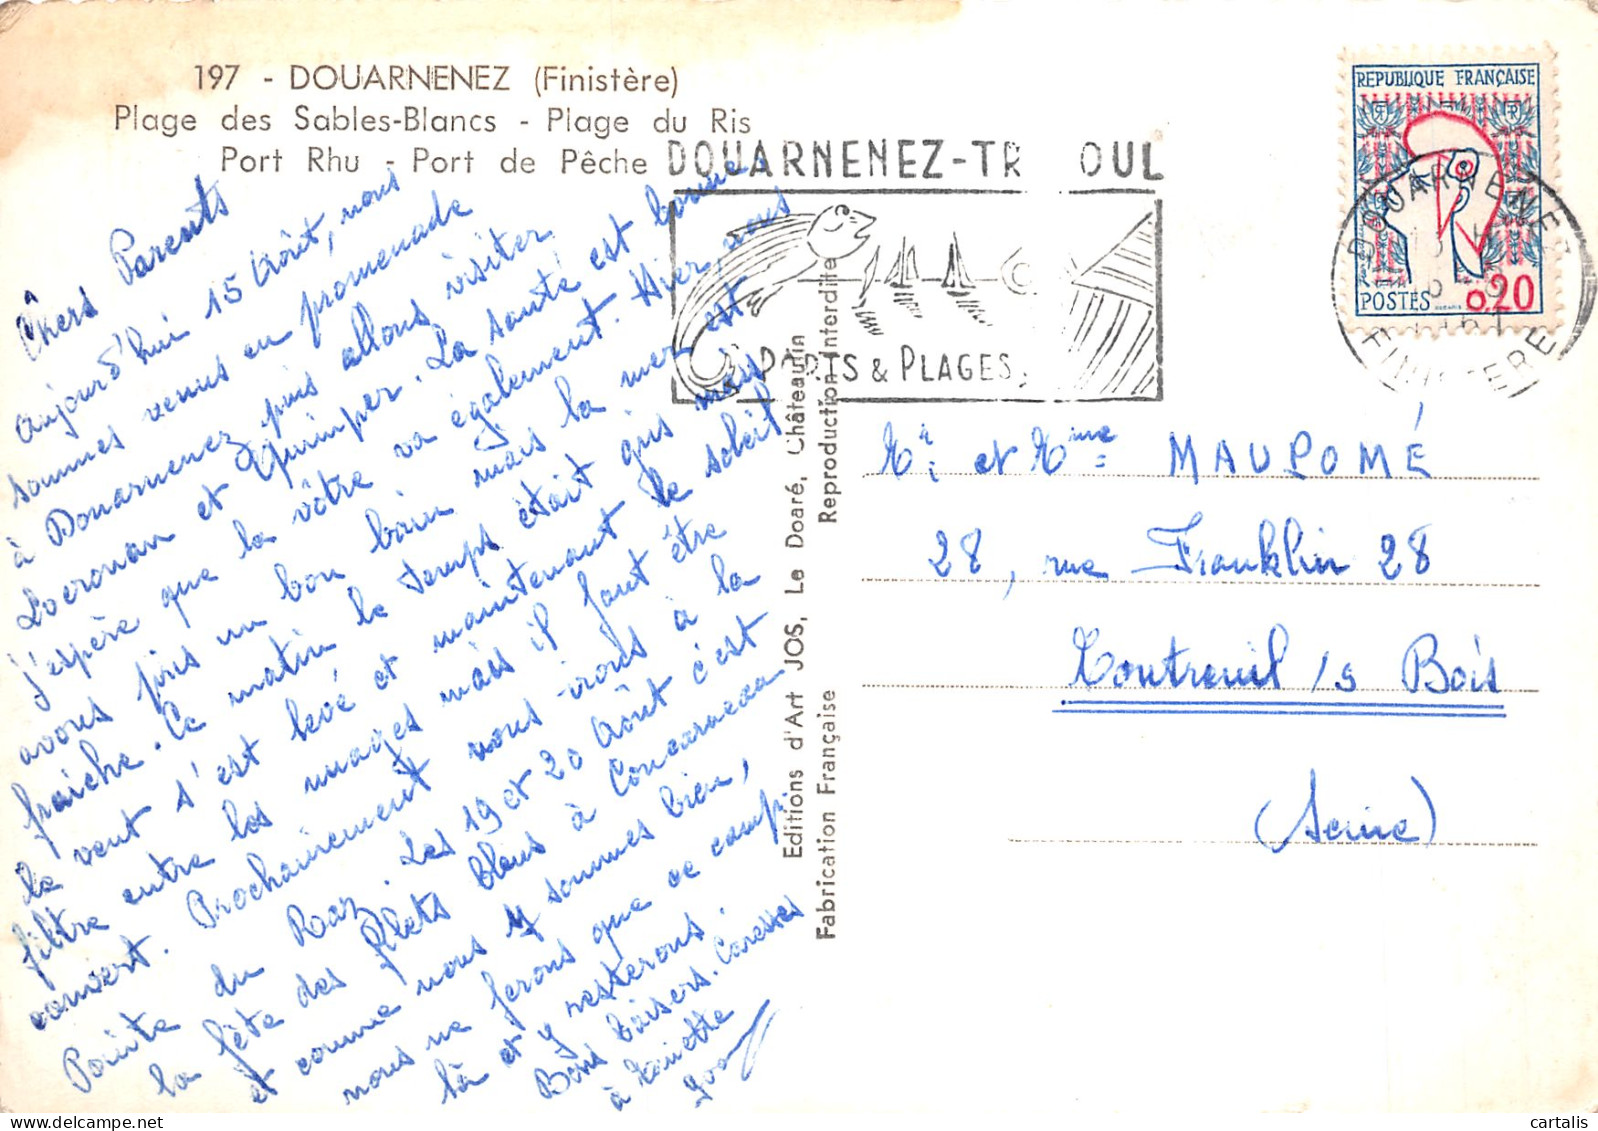 197 - DOUARNENEZ (Finistère)
Plage des Sables-Blancs - Plage du Ris
Port Rhu - Port de Pêche
DOUARNENEZ-TR OUL
PORTS & PLAGES
REPUBLIQUE FRANÇAISE
POSTES 0,20
DOUARNENEZ
FINISTERE
Chers Parents
Aujourd'hui 15 Août, nous
sommes venus en promenade
à Douarnenez puis allons visiter
Locronan et Quimper. La santé est bonne
j'espère que la vôtre va également. Hier, nous
avons pris un bon bain mais la mer est
fraîche. Ce matin le temps était gris mais
le vent s'est levé et maintenant le soleil
filtre entre les nuages mais il faut être
couvert. Prochainement nous irons à la
Pointe du Raz. Les 19 et 20 Août c'est
la fête des filets bleus à Concarneau
et comme nous y sommes bien,
nous ne ferons que ce camp
là et y resterons
Bons baisers. Caresses
à
Editions d'Art JOS, Le Doaré, Châteaulin
Fabrication Française Reproduction Interdite
Mr et Mme MAUPOMÉ
28, rue Franklin 28
Montreuil /s Bois
(Seine)
cartalis